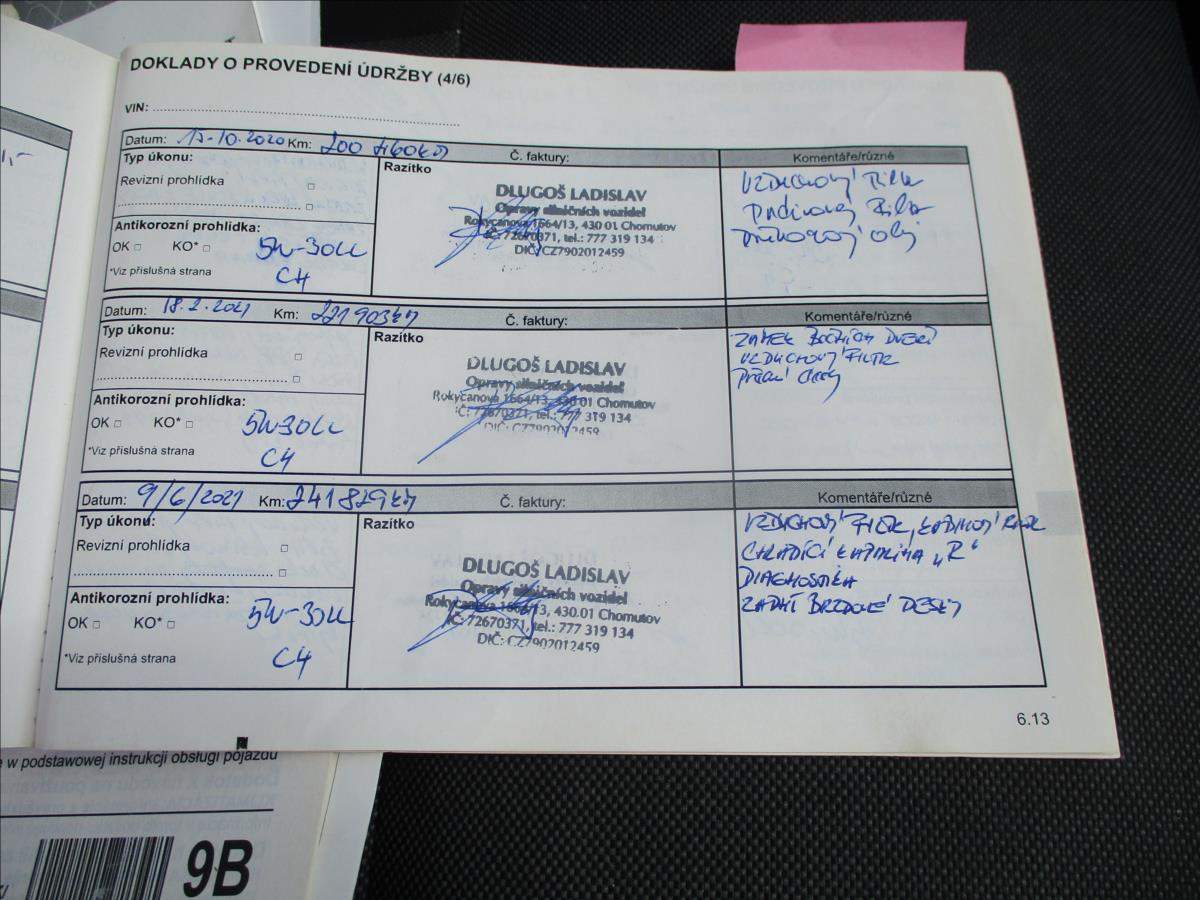 DOKLADY O PROVEDENÍ ÚDRŽBY (4/6)
VIN:
Datum: 15-10.2020 Km: 200 460km Č. faktury: Komentáře/různé
Typ úkonu:
Revizní prohlídka
Antikorozní prohlídka:
OK KO*
*Viz příslušná strana
5W-30LL
C4
Razítko
DLUGOŠ LADISLAV
Opravy silničních vozidel
Rokycanova 1664/13, 430 01 Chomutov
IČ: 72670371, tel.: 777 319 134
DIČ: CZ7902012459
VZDUCHOVÝ Filtr
olej
Datum: 18.2.2021 Km: 221903km Č. faktury: Komentáře/různé
Typ úkonu:
Revizní prohlídka
Antikorozní prohlídka:
OK KO*
*Viz příslušná strana
5W-30LL
C4
Razítko
DLUGOŠ LADISLAV
Opravy silničních vozidel
Rokycanova 1664/13, 430 01 Chomutov
IČ: 72670371, tel.: 777 319 134
DIČ: CZ7902012459
ZÁMEK BOČNÍCH DVEŘÍ
VZDUCHOVÝ FILTR
Datum: 9/6/2021 Km: 241829km Č. faktury: Komentáře/různé
Typ úkonu:
Revizní prohlídka
Antikorozní prohlídka:
OK KO*
*Viz příslušná strana
5W-30LL
C4
Razítko
DLUGOŠ LADISLAV
Opravy silničních vozidel
Rokycanova 1664/13, 430.01 Chomutov
IČ: 72670371, tel.: 777 319 134
DIČ: CZ7902012459
VZDUCHOVÝ FILTR, KABINOVÝ FILTR
CHLADÍCÍ KAPALINA „R“
DIAGNOSTIKA
ZADNÍ BRZDOVÉ DESKY
6.13
e w podstawowej instrukcji obsługi pojazdu
9B